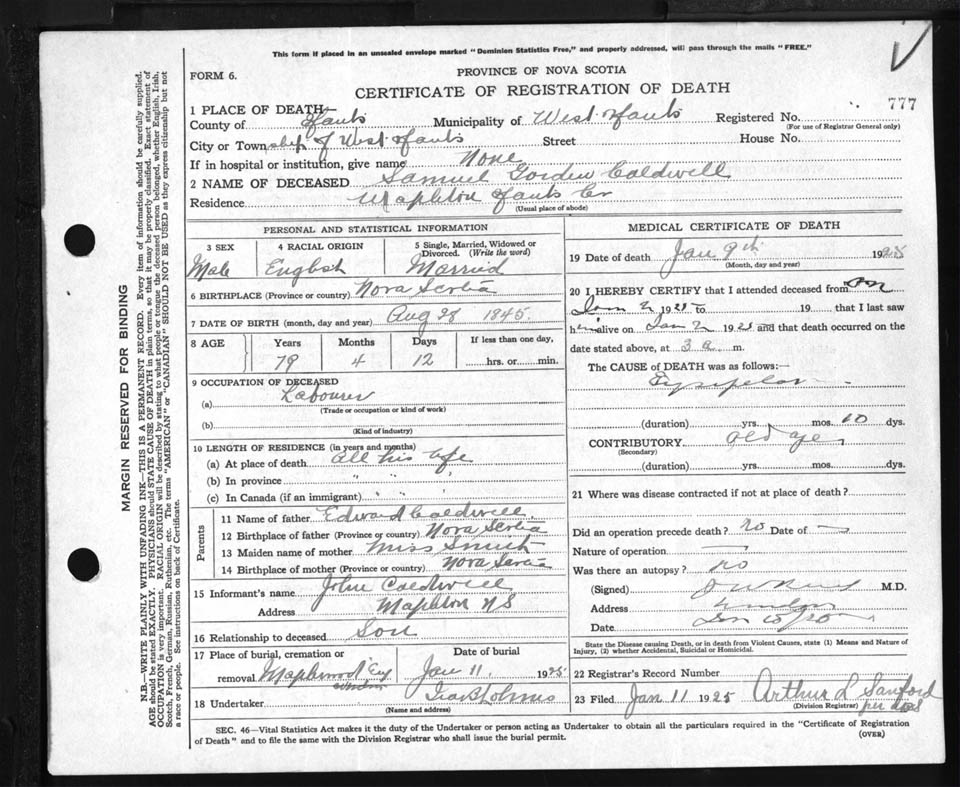 This form if placed in an unsealed envelope marked "Dominion Statistics Free," and properly addressed, will pass through the mails "FREE."
FORM 6.
PROVINCE OF NOVA SCOTIA
CERTIFICATE OF REGISTRATION OF DEATH
777
1 PLACE OF DEATH—
County of Hants Municipality of West Hants Registered No.
(For use of Registrar General only)
City or Township of West Hants Street House No.
If in hospital or institution, give name None
2 NAME OF DECEASED Samuel Gorden Caldwell
Residence Mapleton Hants Co
(Usual place of abode)
PERSONAL AND STATISTICAL INFORMATION
3 SEX 4 RACIAL ORIGIN 5 Single, Married, Widowed or Divorced. (Write the word)
Male English Married
6 BIRTHPLACE (Province or country) Nova Scotia
7 DATE OF BIRTH (month, day and year) Aug 28 1845.
8 AGE Years Months Days If less than one day,
79 4 12 hrs. or min.
9 OCCUPATION OF DECEASED
(a) Labourer
(Trade or occupation or kind of work)
(b)
(Kind of industry)
10 LENGTH OF RESIDENCE (in years and months)
(a) At place of death All his life
(b) In province " "
(c) In Canada (if an immigrant) " "
Parents
11 Name of father Edward Caldwell
12 Birthplace of father (Province or country) Nova Scotia
13 Maiden name of mother Miss Smith
14 Birthplace of mother (Province or country) Nova Scotia
15 Informant's name John Caldwell
Address Mapleton NS
16 Relationship to deceased Son
17 Place of burial, cremation or removal Date of burial
Maplewood Jan 11 1925
18 Undertaker
(Name and address)
MEDICAL CERTIFICATE OF DEATH
19 Date of death Jan 9th 1925
(Month, day and year)
20 I HEREBY CERTIFY that I attended deceased from
Jan 2 1925 to 19 that I last saw
him alive on Jan 2 1925 and that death occurred on the
date stated above, at 3 a. m.
The CAUSE OF DEATH was as follows:—
(duration) yrs. mos. 10 dys.
CONTRIBUTORY old age
(Secondary)
(duration) yrs. mos. dys.
21 Where was disease contracted if not at place of death?
Did an operation precede death? no Date of —
Nature of operation —
Was there an autopsy? no
(Signed) M.D.
Address Windsor
Date
State the Disease causing Death, or in death from Violent Causes, state (1) Means and Nature of
Injury, (2) whether Accidental, Suicidal or Homicidal.
22 Registrar's Record Number
23 Filed Jan 11 1925 Arthur L Sanford
(Division Registrar)
SEC. 46—Vital Statistics Act makes it the duty of the Undertaker or person acting as Undertaker to obtain all the particulars required in the "Certificate of Registration
of Death" and to file the same with the Division Registrar who shall issue the burial permit.
(OVER)
MARGIN RESERVED FOR BINDING
N.B.—WRITE PLAINLY WITH UNFADING INK—THIS IS A PERMANENT RECORD. Every item of information should be carefully supplied.
AGE should be stated EXACTLY. PHYSICIANS should STATE CAUSE OF DEATH in plain terms, so that it may be properly classified. Exact statement of
OCCUPATION is very important. RACIAL ORIGIN will be described by stating to what people or tongue the deceased person belonged, whether English, Irish,
Scotch, French, German, Russian, Ruthenian, etc. The terms "AMERICAN" or "CANADIAN" SHOULD NOT BE USED as they express citizenship but not
a race or people. See instructions on back of Certificate.